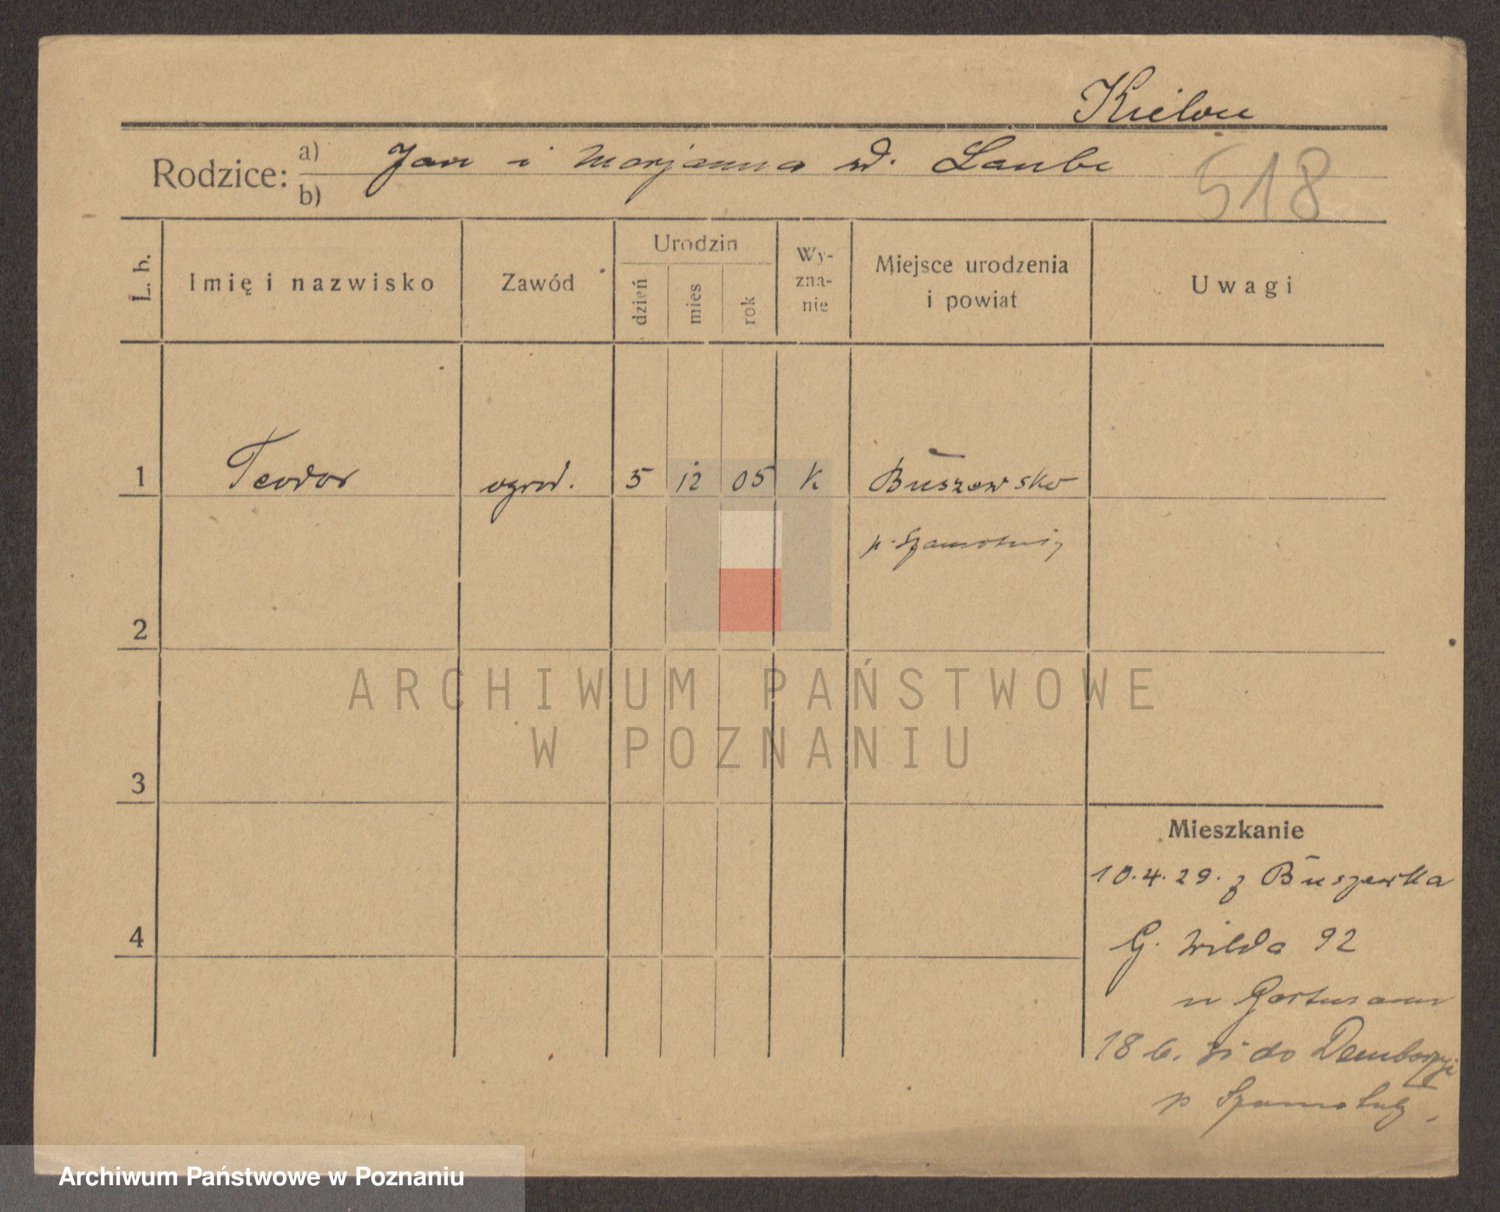 Rodzice:
a) Jan i Marjanna d. Laube
b)
518
L. b.
Imię i nazwisko
Zawód
Urodzin
dzień
mies
rok
Wy-
zna-
nie
Miejsce urodzenia
i powiat
Uwagi
1 Teodor ogrod. 5 12 05 k Buszewsko
p. Szamotuły
2
3
4
Mieszkanie
10.4.29. z Buszewka
G. Wilda 92
18 6. do
p Szamotuły
ARCHIWUM PAŃSTWOWE
W POZNANIU
Archiwum Państwowe w Poznaniu